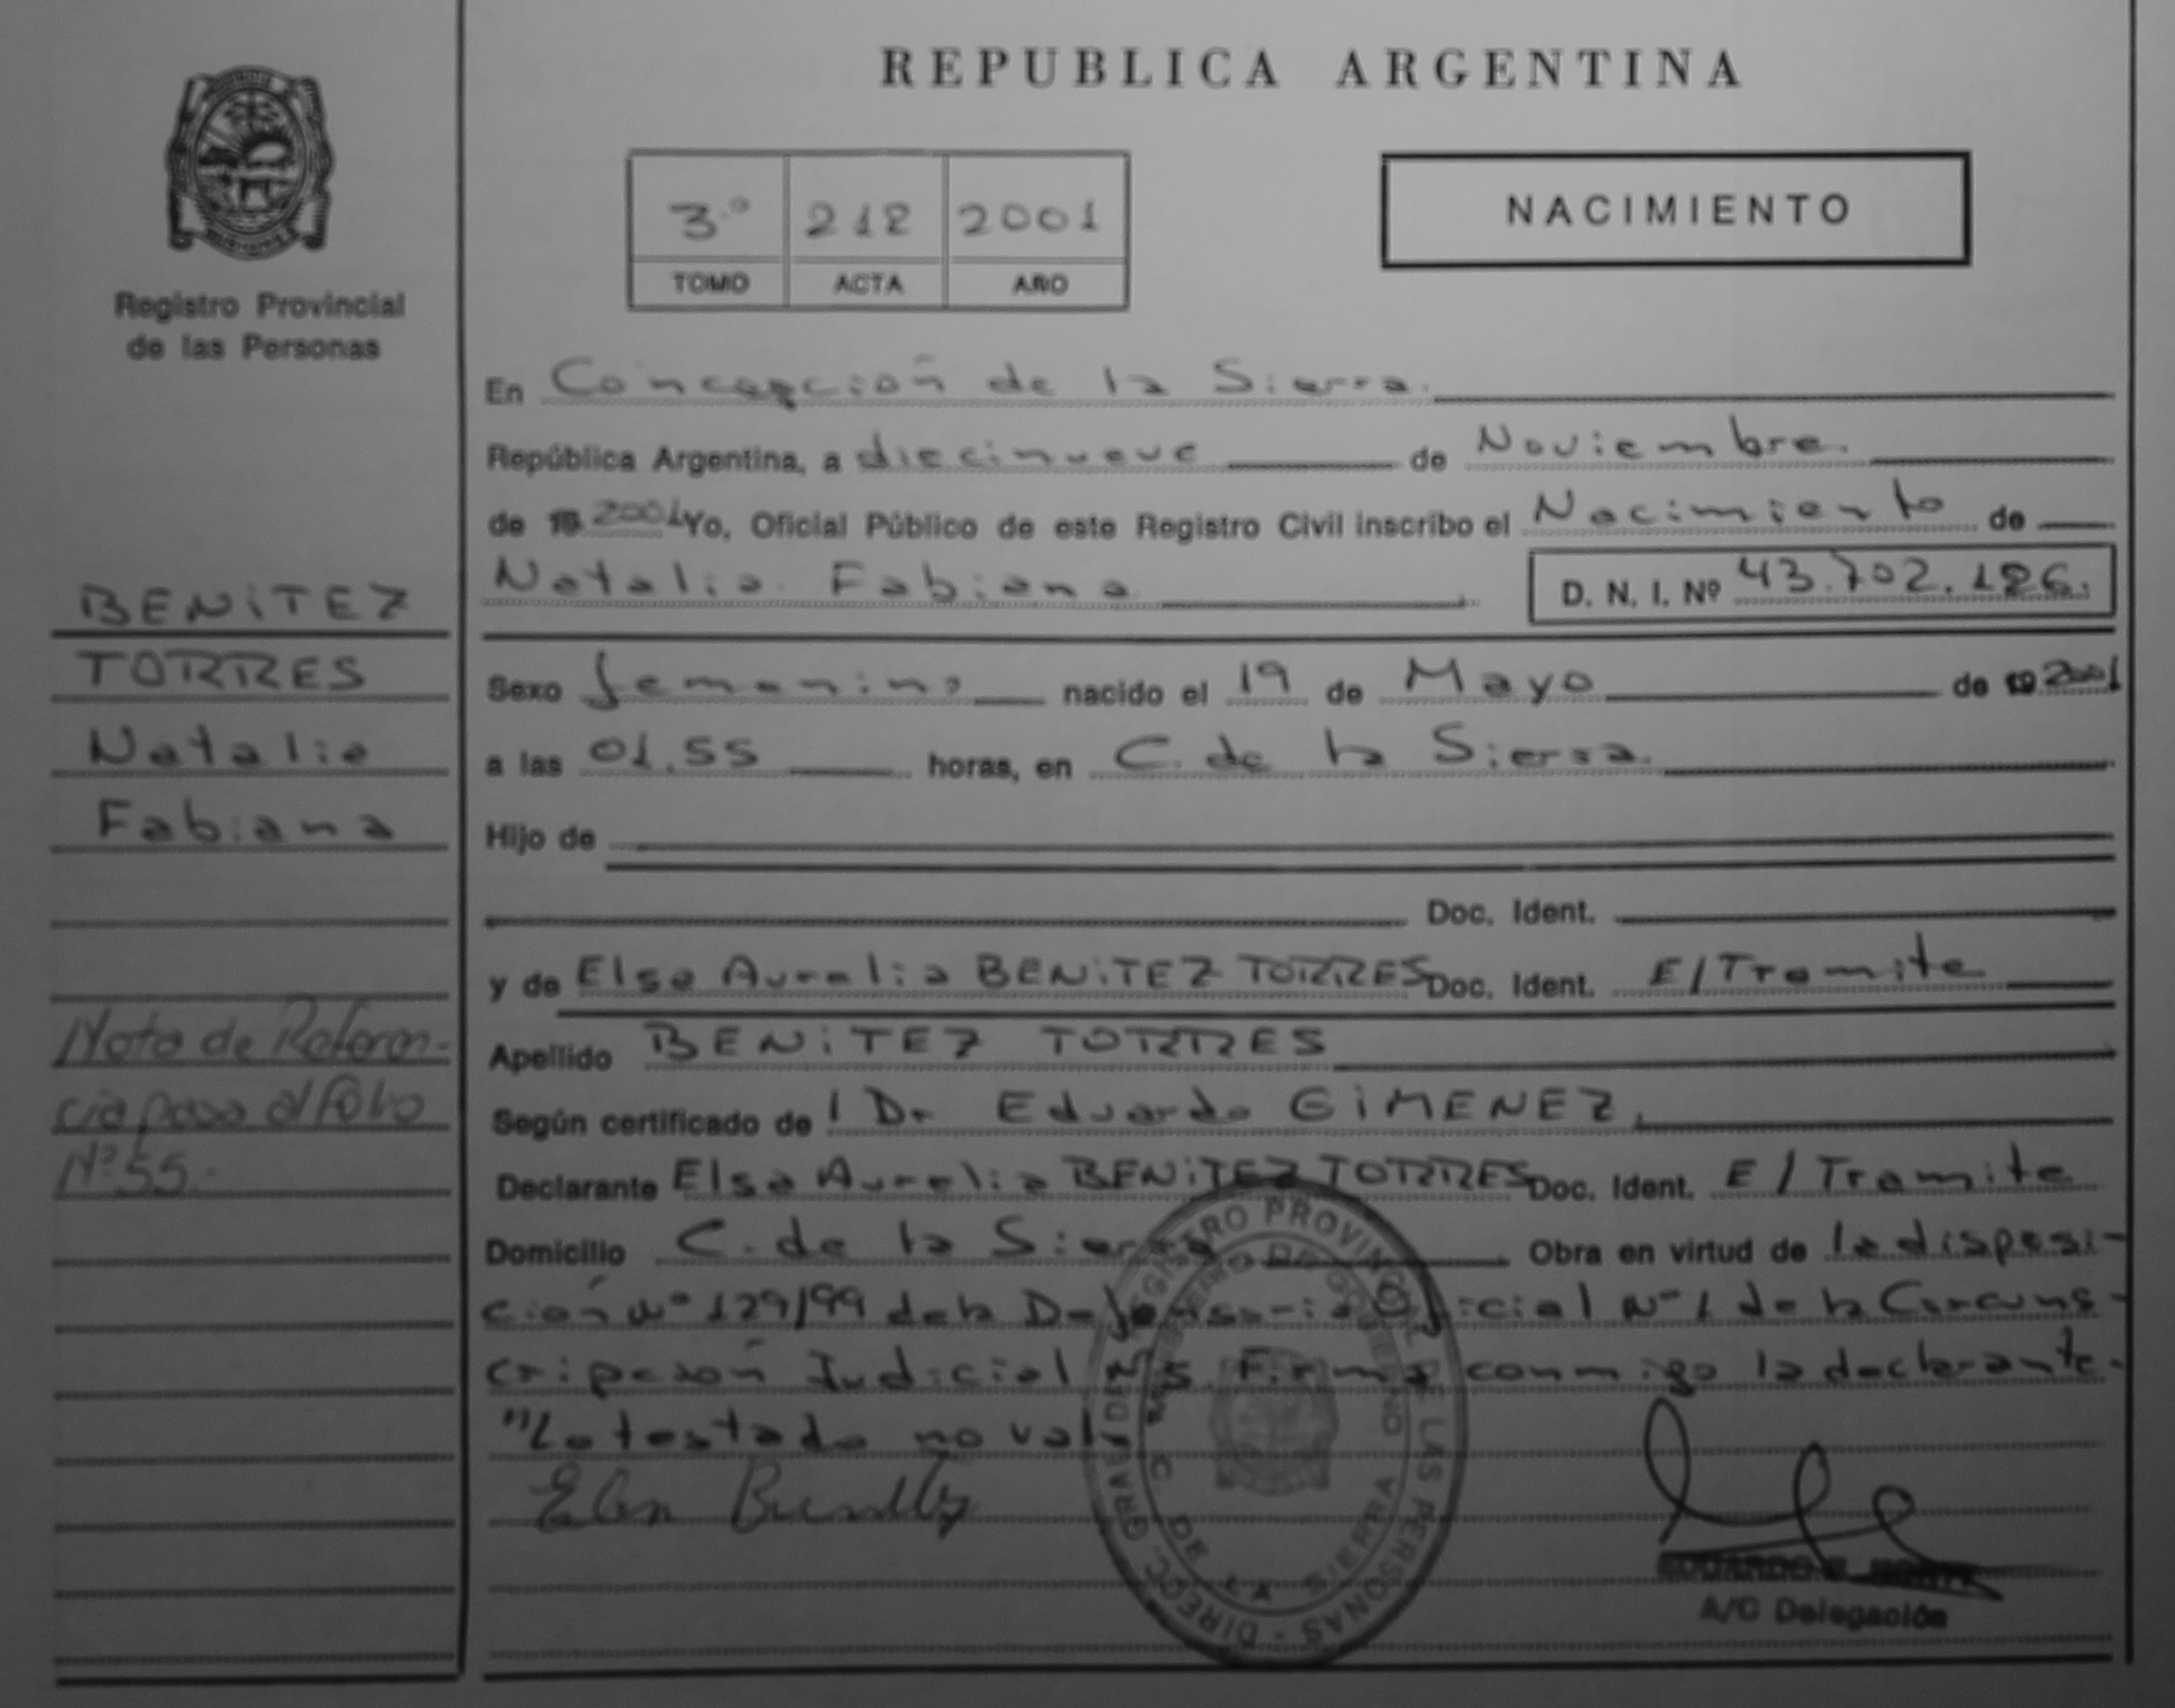 REPUBLICA ARGENTINA
Registro Provincial
de las Personas
3º 212 2001
TOMO ACTA AÑO
NACIMIENTO
En Concepción de la Sierra.
República Argentina, a diecinueve de Noviembre.
de 19 2001 Yo, Oficial Público de este Registro Civil inscribo el Nacimiento de
Natalia Fabiana D. N. I. Nº 43.702.126.
BENiTEZ
TORRES
Natalia
Fabiana
Sexo femenino nacido el 19 de Mayo de 19 2001
a las 01.55 horas, en C. de la Sierra
Hijo de
Doc. Ident.
y de Elsa Aurelia BENiTEZ TORRES Doc. Ident. E/Tramite
Apellido BENiTEZ TORRES
Según certificado de l Dr Eduardo GiMENEZ.
Declarante Elsa Aurelia BENiTEZ TORRES Doc. Ident. E/Tramite
Domicilio C. de la Sierra Obra en virtud de la disposi-
ción Nº 129/99 de la Defensoria Oficial Nº 1 de la Circuns-
cripción Judicial Firma conmigo la declarante.
"Lo testado no vale
Nota de Referen-
cia pasa al folio
Nº 55.-
DIRECC. GRAL DEL REGISTRO PROVINCIAL DE LAS PERSONAS
C. DE LA SIERRA
A/C Delegación